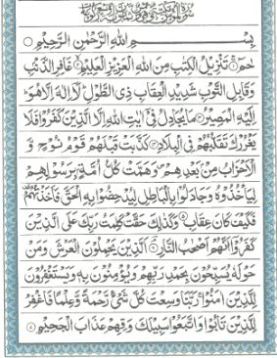 بِسْمِ اللهِ الرَّحْمٰنِ الرَّحِيْمِ
حٰمٓ تَنْزِيْلُ الْكِتٰبِ مِنَ اللهِ الْعَزِيْزِ الْعَلِيْمِ غَافِرِ الذَّنْبِ
وَقَابِلِ التَّوْبِ شَدِيْدِ الْعِقَابِ ذِى الطَّوْلِ لَآ اِلٰهَ اِلَّا هُوَ
اِلَيْهِ الْمَصِيْرُ مَا يُجَادِلُ فِىْٓ اٰيٰتِ اللهِ اِلَّا الَّذِيْنَ كَفَرُوْا فَلَا
يَغْرُرْكَ تَقَلُّبُهُمْ فِى الْبِلَادِ كَذَّبَتْ قَبْلَهُمْ قَوْمُ نُوْحٍ وَّ
الْاَحْزَابُ مِنْ بَعْدِهِمْ وَهَمَّتْ كُلُّ اُمَّةٍ بِرَسُوْلِهِمْ
لِيَاْخُذُوْهُ وَجَادَلُوْا بِالْبَاطِلِ لِيُدْحِضُوْا بِهِ الْحَقَّ فَاَخَذْتُهُمْ
فَكَيْفَ كَانَ عِقَابِ وَكَذٰلِكَ حَقَّتْ كَلِمَتُ رَبِّكَ عَلَى الَّذِيْنَ
كَفَرُوْٓا اَنَّهُمْ اَصْحٰبُ النَّارِ اَلَّذِيْنَ يَحْمِلُوْنَ الْعَرْشَ وَمَنْ
حَوْلَهٗ يُسَبِّحُوْنَ بِحَمْدِ رَبِّهِمْ وَيُؤْمِنُوْنَ بِهٖ وَيَسْتَغْفِرُوْنَ
لِلَّذِيْنَ اٰمَنُوْا رَبَّنَا وَسِعْتَ كُلَّ شَىْءٍ رَّحْمَةً وَّعِلْمًا فَاغْفِرْ
لِلَّذِيْنَ تَابُوْا وَاتَّبَعُوْا سَبِيْلَكَ وَقِهِمْ عَذَابَ الْجَحِيْمِ